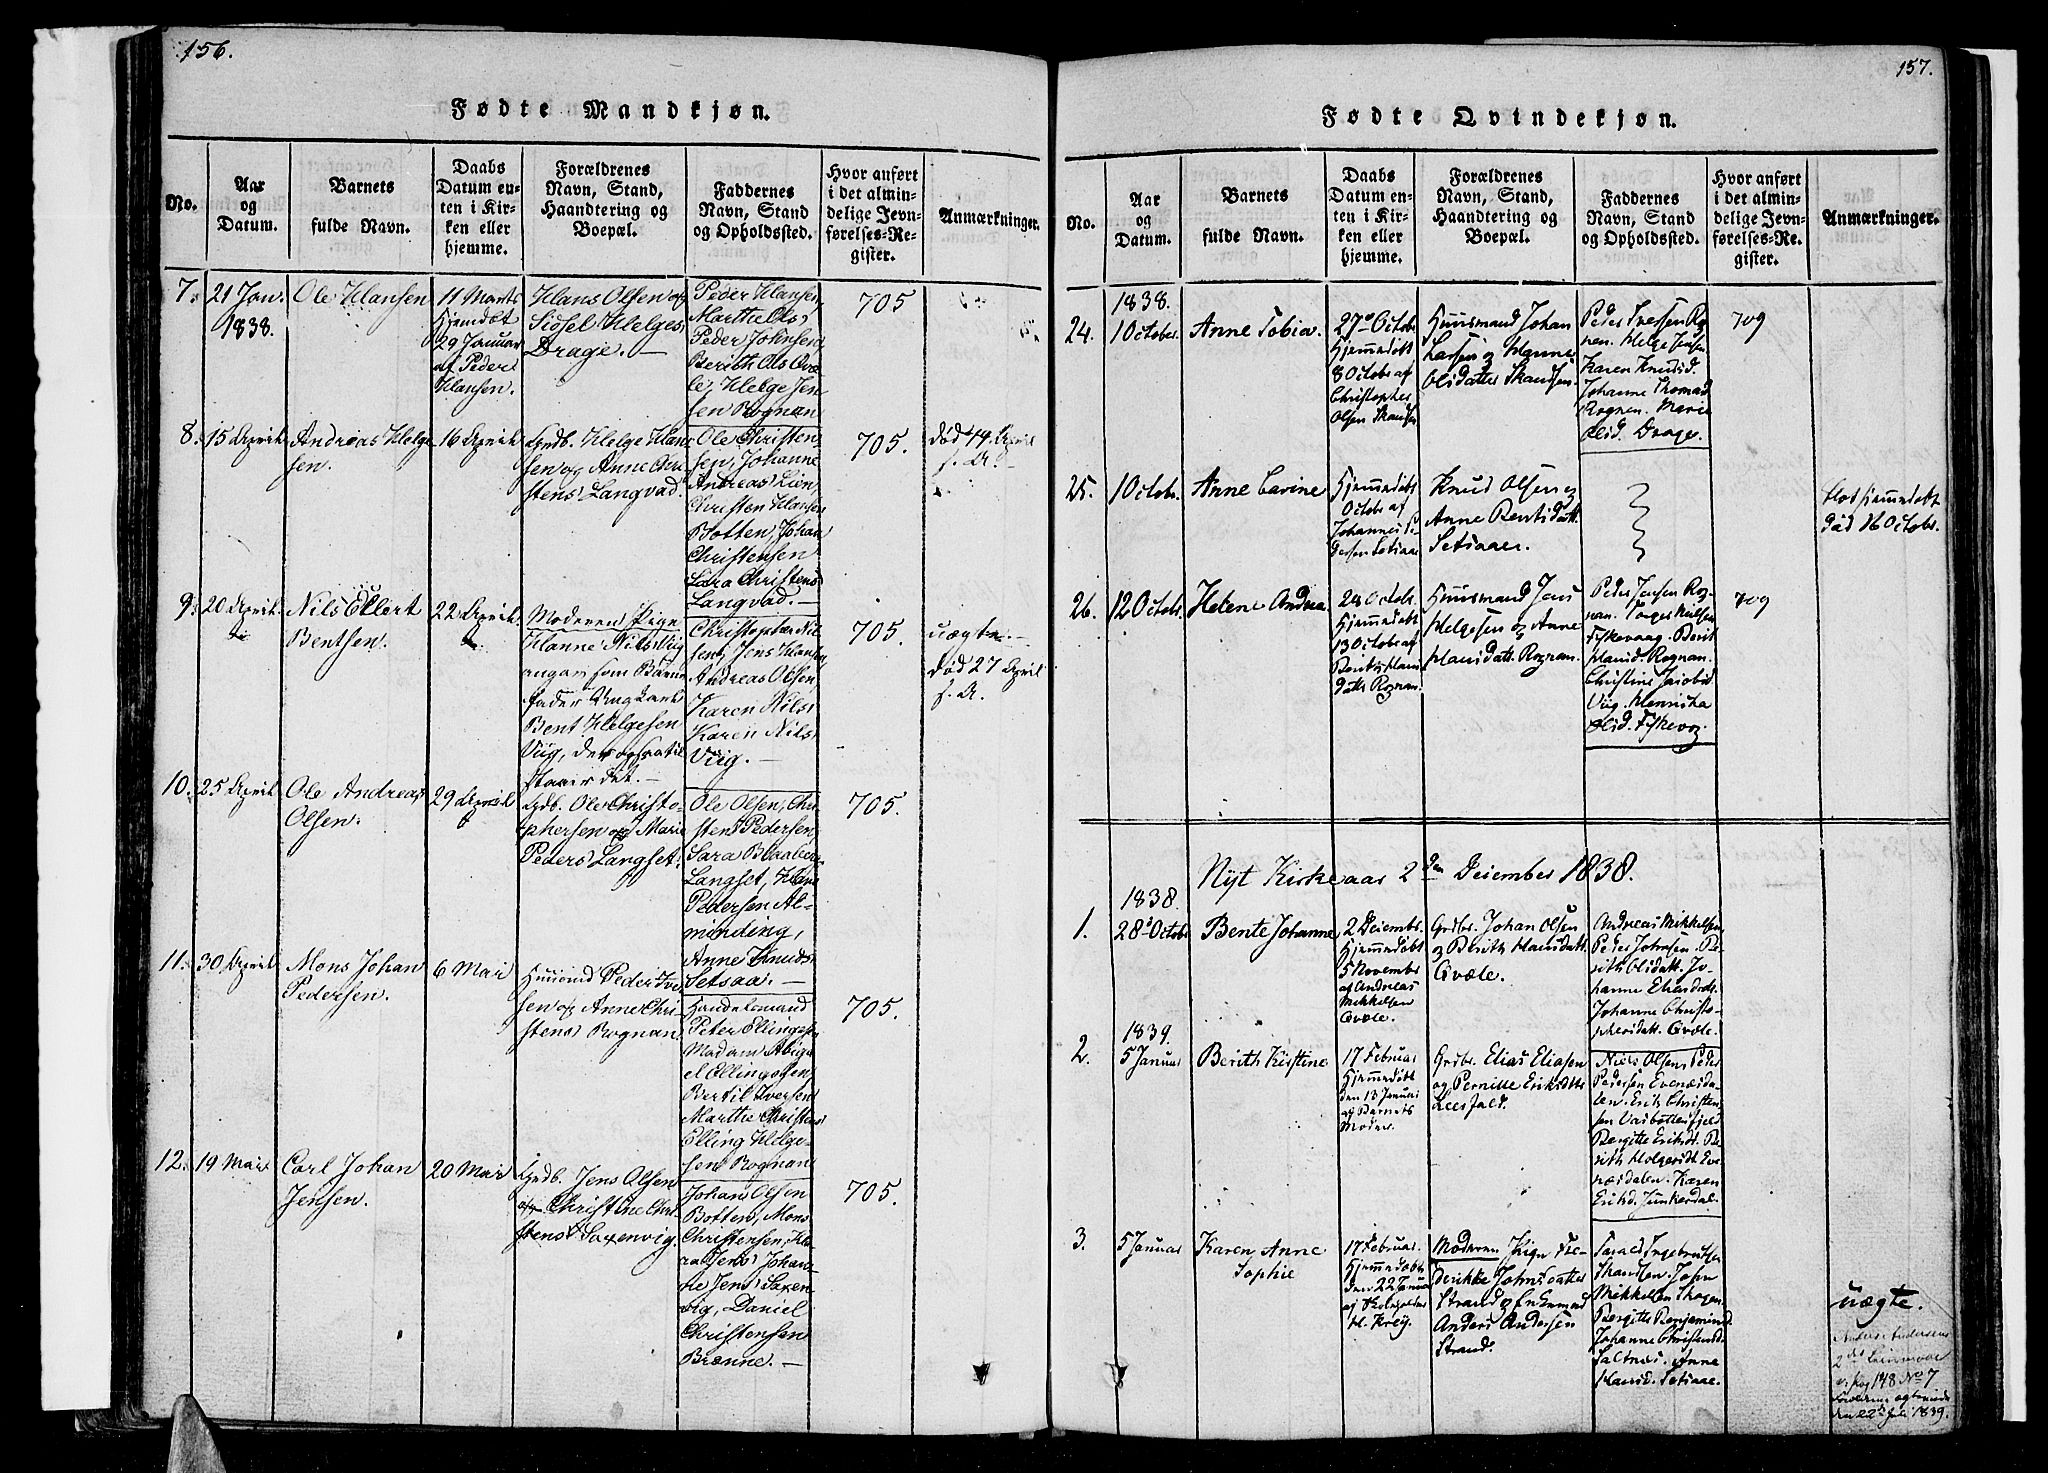 156.
Fødte Mandkjøn.
No.
Aar
og
Datum.
Barnets
fulde Navn.
Daabs
Datum en-
ten i Kir-
ken eller
hjemme.
Forældrenes
Navn, Stand,
Haandtering og
Boepæl.
Faddernes
Navn, Stand
og Opholdssted.
Hvor anført
i det almin-
delige Jevn-
førelses-Re-
gister.
Anmærkninger.
7.
21 Jan.
1838.
Ole Hansen
11 Marts
Hjemdøt
29 Januar
af Peder
Hansen.
Hans Olsen og
Sidsel Helges
Drage. —
Peder Hansen,
Marthe Ols,
Peder Johnsen,
Berith Ols Qvæ-
le, Helge Jen-
sen Rognan
705
8.
15 April
Andreas Helge
sen.
16 April
Grdb. Helge Han
sen og Anne Chri
stens Langvad.
Ole Christen-
sen, Johanne
Andreas Lien
Christen Hansen
Botten, Johan
Christensen
Sara Christens
Langvad. —
705.
død 19 April
s. A. —
9.
20 April
Nils Ellert
Bentsen.
22 April
Moderen Pige
Hanne Nils Viig
angav som Barne
fader Ungkarl
Bent Helgesen
Viig, der ogsaa til
staaer det. —
Christopher Nil
sen, Jens Hansen,
Andreas Olsen,
Karen Nils
Karen Nils
Viig. —
705.
uægte. —
død 27 April
s. A.
10.
25 April
Ole Andreas
Olsen.
29 April
Grdb. Ole Christo-
phersen og Marie
Peders Langset.
Ole Olsen, Chri-
sten Pedersen,
Sara
Langset, Hans
Pedersen Al-
minding,
Anne Knuds
Setsaa. —
705.
11.
30 April
Mons Johan
Pedersen.
6 Mai
Huusmd Peder Iver
sen og Anne Chri-
stens Rognan
Handelsmand
Peter Ellingsen
Madam Abiga
el Ellingsen
Bertil Iversen
Marthe Christens
Elling Helge-
sen Rognan
705.
12.
19 Mai
Carl Johan
Jensen.
20 Mai
Grdb. Jens Olsen
og Christine Chri
stens Saxenvig.
Johan Olsen
Botten, Mons
Christensen,
Jens Johan-
ne Jens Saxen
vig, Daniel
Christensen
Brenne. —
705.
157.
Fødte Qvindekjøn.
No.
Aar
og
Datum.
Barnets
fulde Navn.
Daabs
Datum en-
ten i Kir-
ken eller
hjemme.
Forældrenes
Navn, Stand,
Haandtering og
Boepæl.
Faddernes
Navn, Stand
og Opholdssted.
Hvor anført
i det almin-
delige Jevn-
førelses-Re-
gister.
Anmærkninger.
1838.
24.
1 October.
Anne Tobia.
27 Octobr
Hjemmedøbt
8 Octobr af
Christopher
Olsen Skansen
Huusmand Johan
Larsen og Hanne
Olsdatter Skansen.
Peder Iversen Rog
nan. Helge Jensen
Karen Knudsd.
Johanne Thomasd
Rognan. Marie
Olsd. Drage.
709
25.
1 Octobr.
Anne Carine
Hjemmedøbt
Octobr af
Johannes Pe
dersen Setsaae
Knud Olsen og
Anne Bentsdatt.
Setsaaen.
blot hjemmedøbt
død 16 Octobr.
26.
12 Octobr.
Helene Andrea
28 Octobr.
Hjemmedøbt
13 Octobr af
Berith Hans
datter Rognan.
Huusmand Jens
Helgesen og Anne
Hansdatt. Rognan.
Peder Jensen Rog
nan. Torger Nielsen
Fiskevaag. Berit
Hansd. Rognan.
Christine Jacobsd
Viig. Henrikka
Olsd. Fiskevog.
709
Nyt Kirkeaar 2den December 1838.
1838.
1.
28 Octobr
Bente Johanne
2 Decembr.
Hjemmedøbt
5 Novembr
af Andreas
Mikkelsen
Qvæle.
Grdbr. Johan Olsen
og Berith Hansdatt.
Qvæle.
Andreas Mikkelsen
Peder Johnsen. Be-
rith Olsdatt. Jo-
hanne Eliasdatt.
Johanne Christo-
phersdatt. Qvæle.
1839.
2.
5 Januar
Berith Kirstine
17 Februar
Hjemmedøbt
den 13 Januar
af Barnets
Moder.
Grdbr. Elias Eliasen
og Pernille Eriksdtr
Leesfald.
Niels Olsen. Peder
Pedersen Evenæsda-
len. Erik Christen-
sen
Bergitte Eriksd. Be-
rith Holgersdt Eve-
næsdalen. Karen
Eriksd. Junkerdal.
3.
5 Januar
Karen Anne
Sophie
17 Februar.
Hjemmedøbt
den 22 Januar
af
Moderen Pige Fre-
derikke Johnsdatter
Strand og Enkemand
Anders Andersen
Strand.
Ingebrigtsen
Skansen. John
Mikkelsen Skogen
Bergitte Benjamind.
Johanne Christensd
Saltnes. Anne
Hansd. Setsaae.
uægte.
Anders Andersens
2det Leiermaal
v. Pag 148 No 7
den 22 Juli 1839.